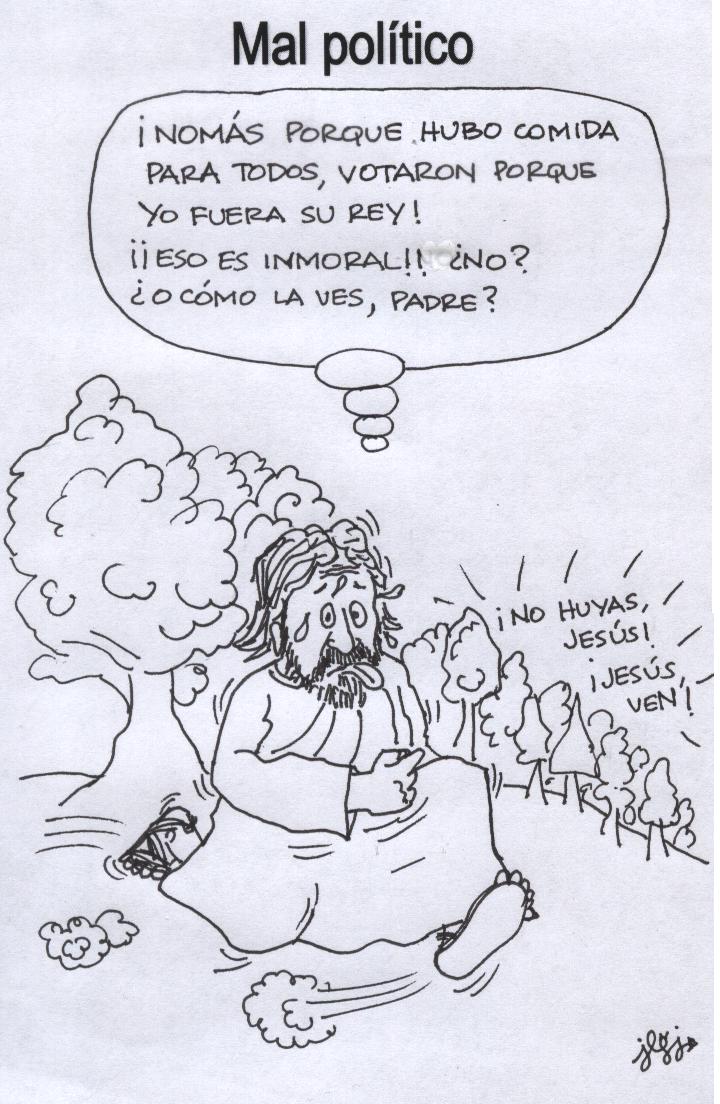 Mal político
¡NOMÁS PORQUE HUBO COMIDA
PARA TODOS, VOTARON PORQUE
YO FUERA SU REY!
¡¡ESO ES INMORAL!! ¿NO?
¿O CÓMO LA VES, PADRE?
¡NO HUYAS,
JESÚS!
¡JESÚS,
VEN!